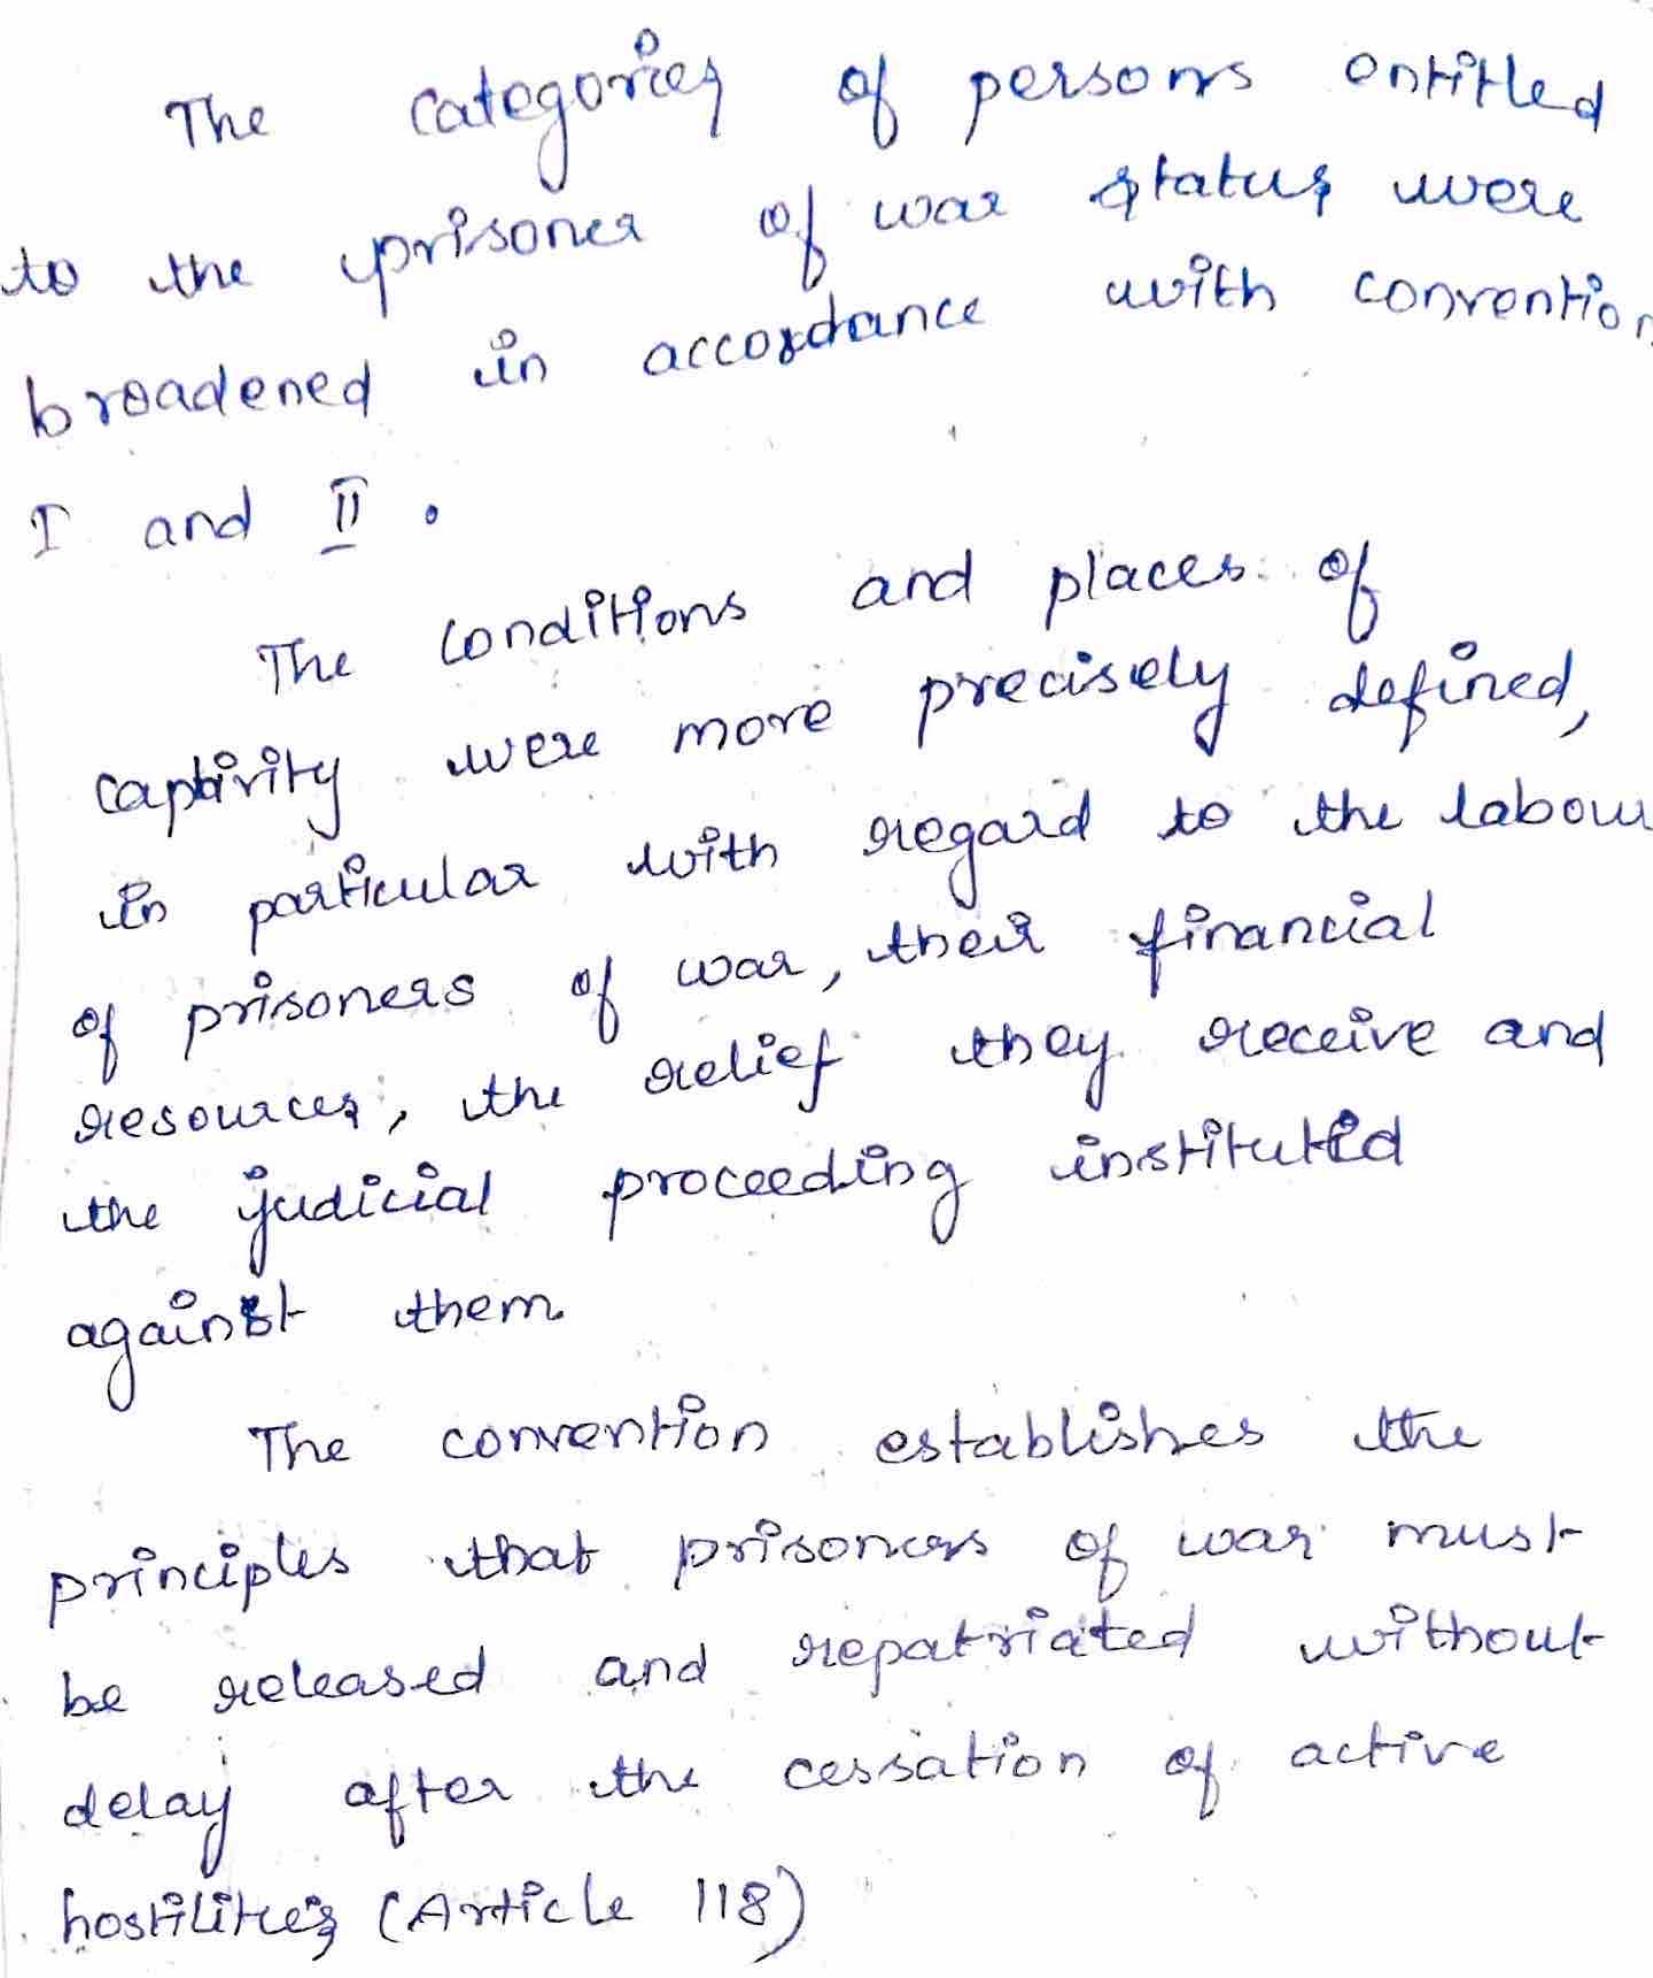 The categories of persons entitled
to the prisoner of war status were
broadened in accordance with convention
I and II.
The conditions and places of
captivity were more precisely defined,
in particular with regard to the labour
of prisoners of war, their financial
resources, the relief they receive and
the judicial proceeding instituted
against them
The convention establishes the
principles that prisoners of war must
be released and repatriated without
delay after the cessation of active
hostilities (Article 118)